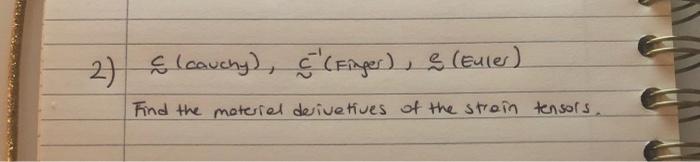 2) c̰ (cauchy), c̰⁻¹ (Finger), ḛ (Euler)
Find the material derivatives of the strain tensors.